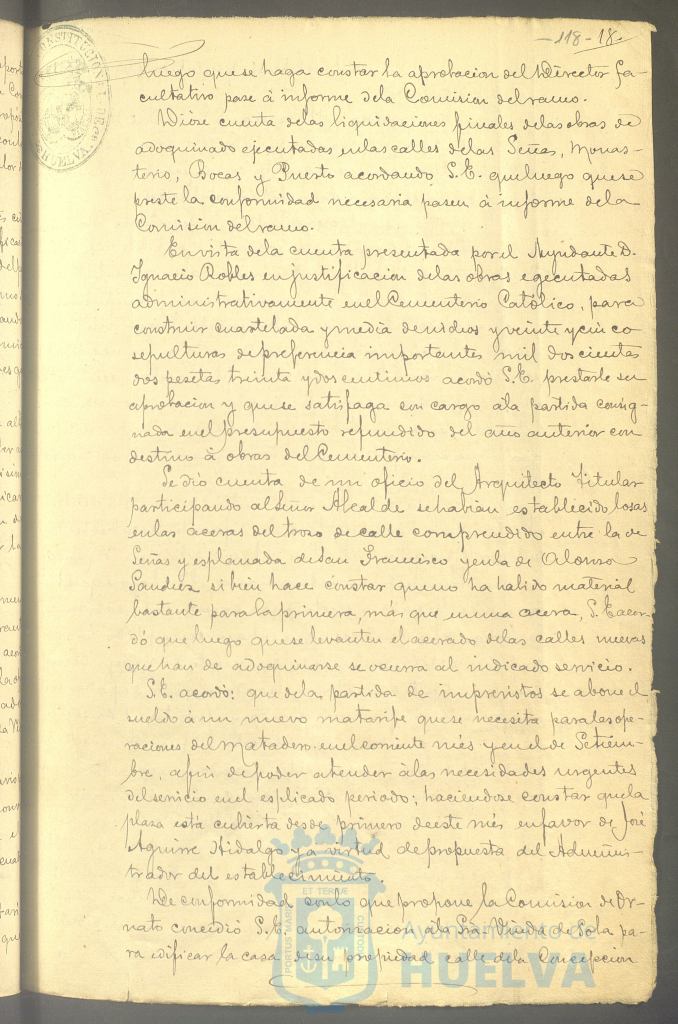 -118-18.
luego que se haga constar la aprobacion del Director fa-
cultativo pase á informe de la Comision del ramo.
Dióse cuenta de las liquidaciones finales de las obras de
adoquinado ejecutadas en las calles de las Señas, Monas-
terio, Bocas y Puerto acordando S.E. que luego que se
preste la conformidad necesaria pasen á informe de la
Comision del ramo.
En vista de la cuenta presentada por el Ayudante D.
Ignacio Robles en justificacion de las obras egecutadas
administrativamente en el Cementerio Católico, para
construir cuartelada y media de nidios y veinte y cinco
sepulturas de preferencia importantes mil doscientas
dos pesetas treinta y dos centimos acordó S.E. prestarle su
aprobacion y que se satisfaga con cargo á la partida consig-
nada en el presupuesto refundido del año anterior con
destino á obras del Cementerio.
Se dió cuenta de un oficio del Arquitecto Titular
participando al Señor Alcalde se habian establecido losas
en las aceras del trozo de calle comprendido entre la de
Señas y esplanada de San Francisco y en la de Alonso
Sanchez si bien hace constar que no ha habido material
bastante para la primera, más que en una acera, S.E. acor-
dó que luego que se levanten el acerado de las calles nuevas
que han de adoquinarse se ocurra al indicado servicio.
S.E. acordó: que de la partida de imprevistos se abone el
sueldo á un nuevo matarife que se necesita para las ope-
raciones del Matadero en el corriente més y en el de Setiem-
bre, á fin de poder atender á las necesidades urgentes
del servicio en el esplicado periodo; haciendose constar que la
plaza está cubierta desde primero de este més en favor de José
Aguirre Hidalgo y a virtud de propuesta del Adminis-
trador del establecimiento.
De conformidad con lo que propone la Comision de Or-
nato concedió S.E. autorizacion á la Sra Viuda de Sola pa-
ra edificar la casa de su propiedad calle de la Concepcion
ET TERRAE
PORTUS MARIS
CUSTODIA
Ayuntamiento de
HUELVA